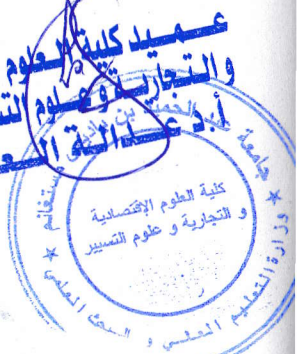 عميد كلية العلوم
و التجارية و علوم
أ.د عدالة
جامعة عبد الحميد بن باديس مستغانم
كلية العلوم الإقتصادية
و التجارية و علوم التسيير
وزارة التعليم العالي و البحث العلمي